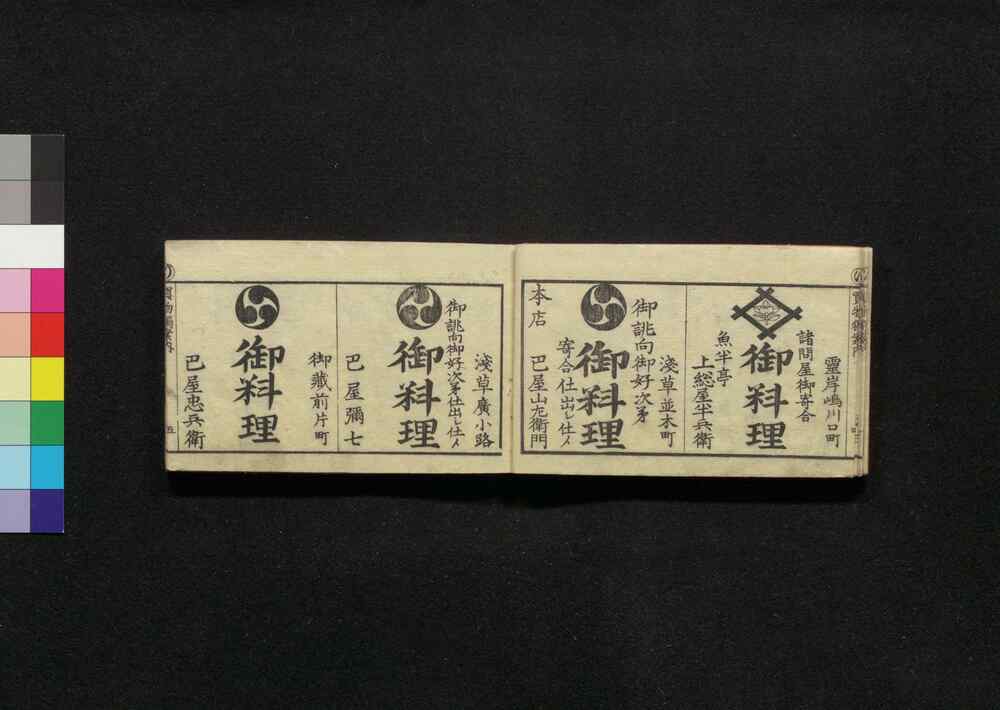 靈岸嶋川口町
諸問屋御寄合
御料理
魚半亭
上総屋半兵衛
淺草並木町
御誂向御好次㐧
御料理
寄合仕出し仕候
本店
巴屋山左衛門
淺草廣小路
御誂向御好次㐧仕出し仕候
御料理
巴屋彌七
御藏前片町
御料理
巴屋忠兵衛
五